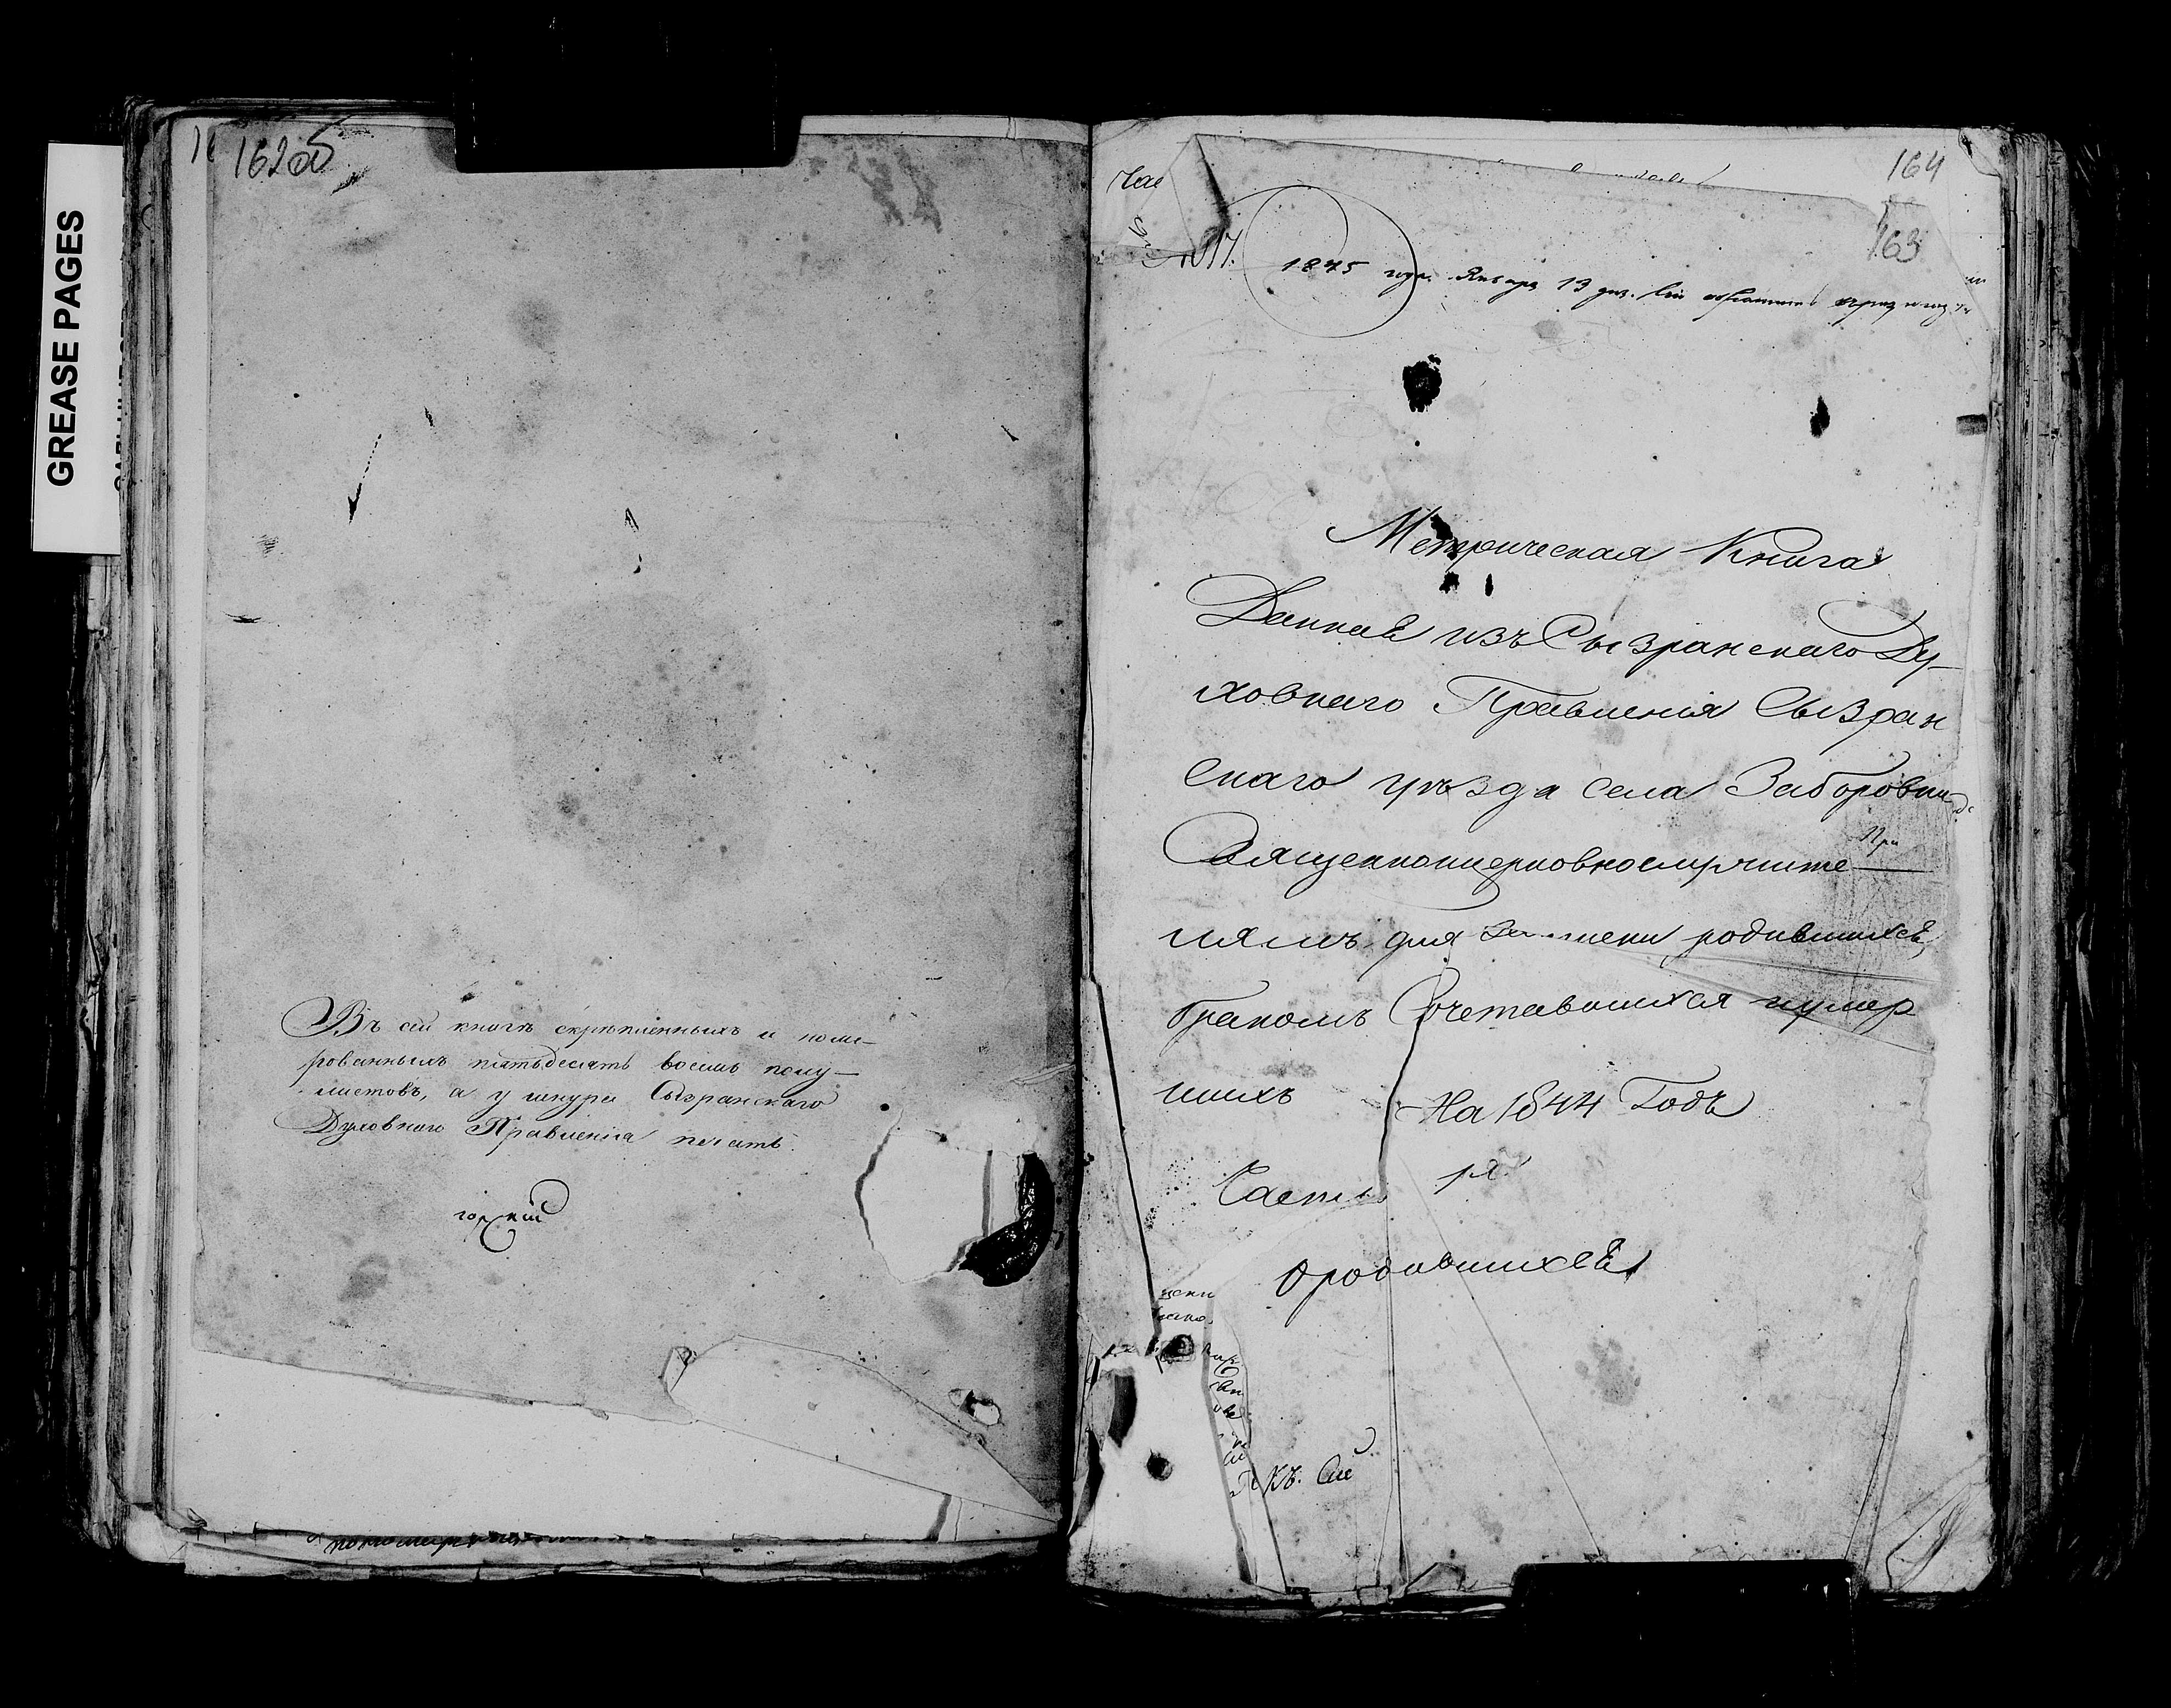 GREASE PAGES
162об
Въ сей книгѣ скрѣпленныхъ и номе-
рованныхъ пятьдесятъ восемь полу-
листовъ, а у шнура Сызранскаго
Духовнаго Правленія печать.
горскій
164
163
№ 17.
1845 года Января 19 дня.
Метрическая Книга
Данная изъ Сызранскаго Ду-
ховнаго Правленія Сызран
скаго уѣзда села Заборовки
Священноцерковнослужите
При
лямъ для записки родившихся,
бракомъ Сочетавшихся и умер
шихъ На 1844 Годъ
Часть 1я
О родившихся
Къ Сей